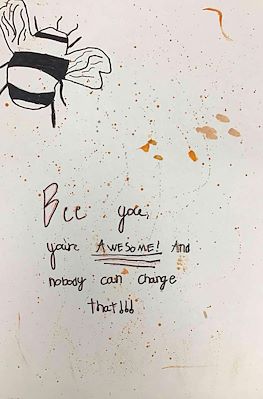 Bee you,
you're AWESOME! And
nobody can change
that!!!